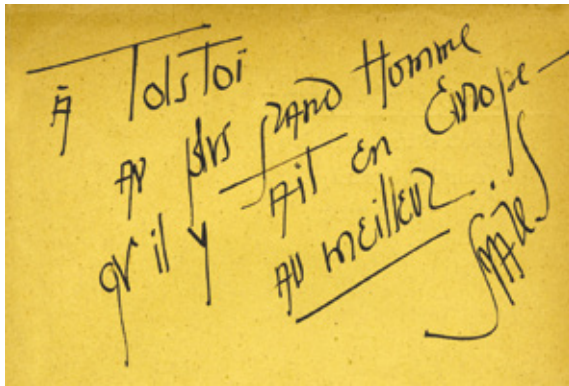 À Tolstoï
au plus grand Homme
qu'il y ait en Europe –
au meilleur.
Suarès